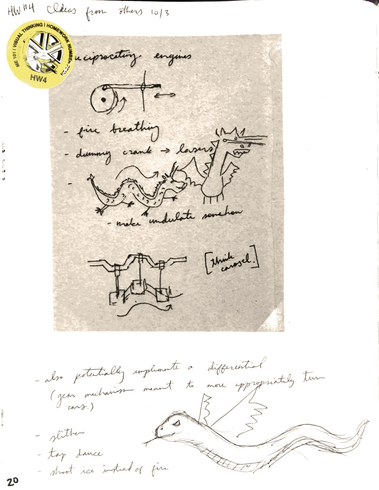 HW#4 Ideas from others 10/3
ME 101 | VISUAL THINKING | HOMEWORK
HW4
reciprocating engines
- fire breathing
- dummy crank → lasers
-
- make undulate somehow
[think carosel]
- also potentially implement a differential
(gear mechanism meant to more appropriately turn
cars.)
- slither
- tap dance
- shoot ice instead of fire
20